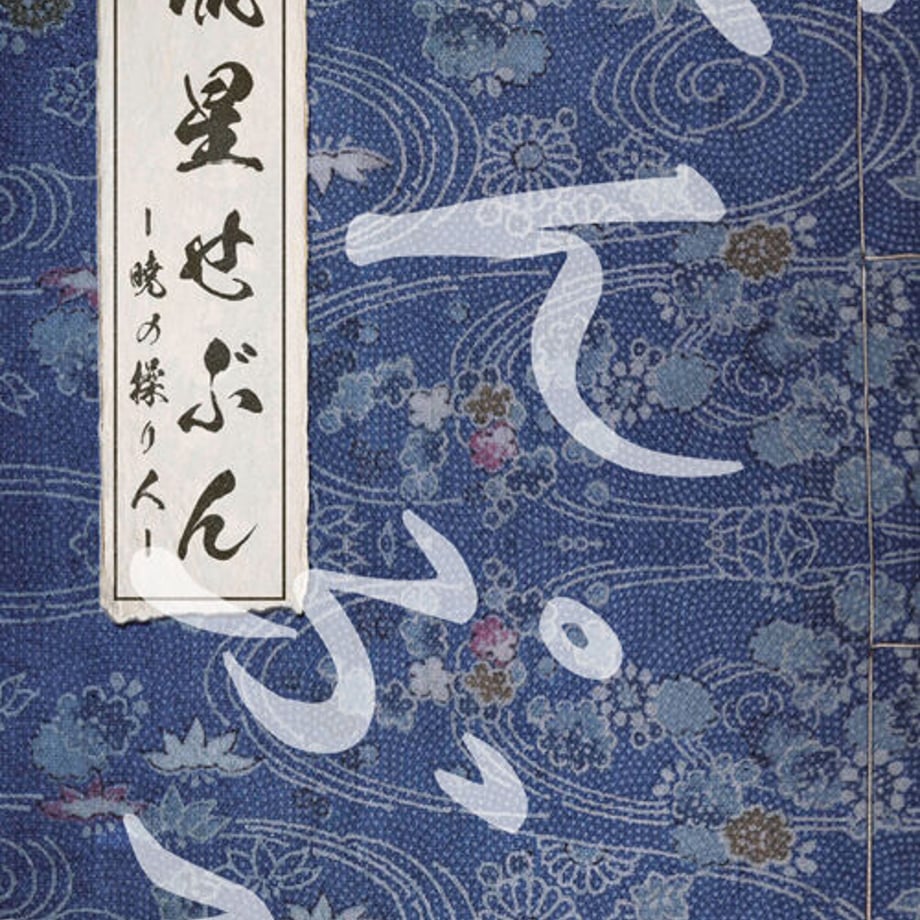 てぷ
流星せぶん
ー暁の操り人ー